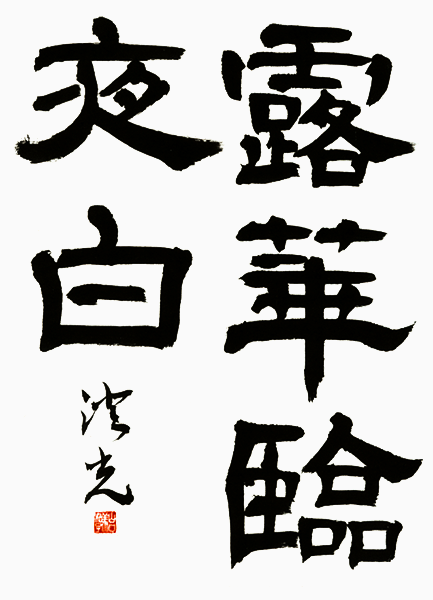 露華臨
夜白